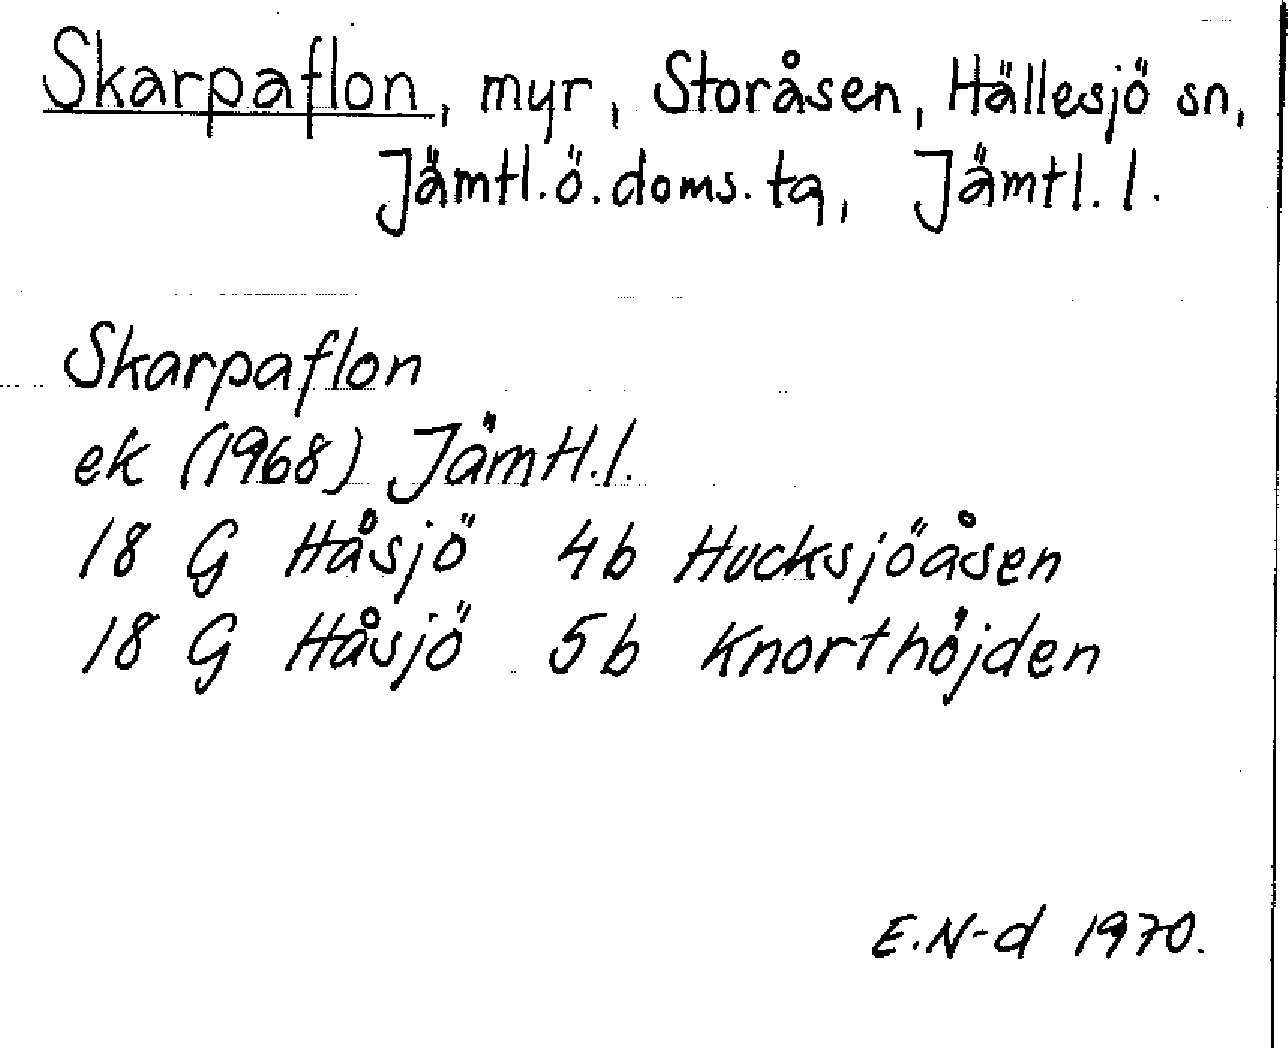 Skarpaflon, myr, Storåsen, Hällesjö sn,
Jämtl.ö.doms.tg, Jämtl. l.
Skarpaflon
ek (1968) Jämtl.l.
18 G Håsjö 4b Hucksjöåsen
18 G Håsjö 5b Knorthöjden
E.N-d 1970.